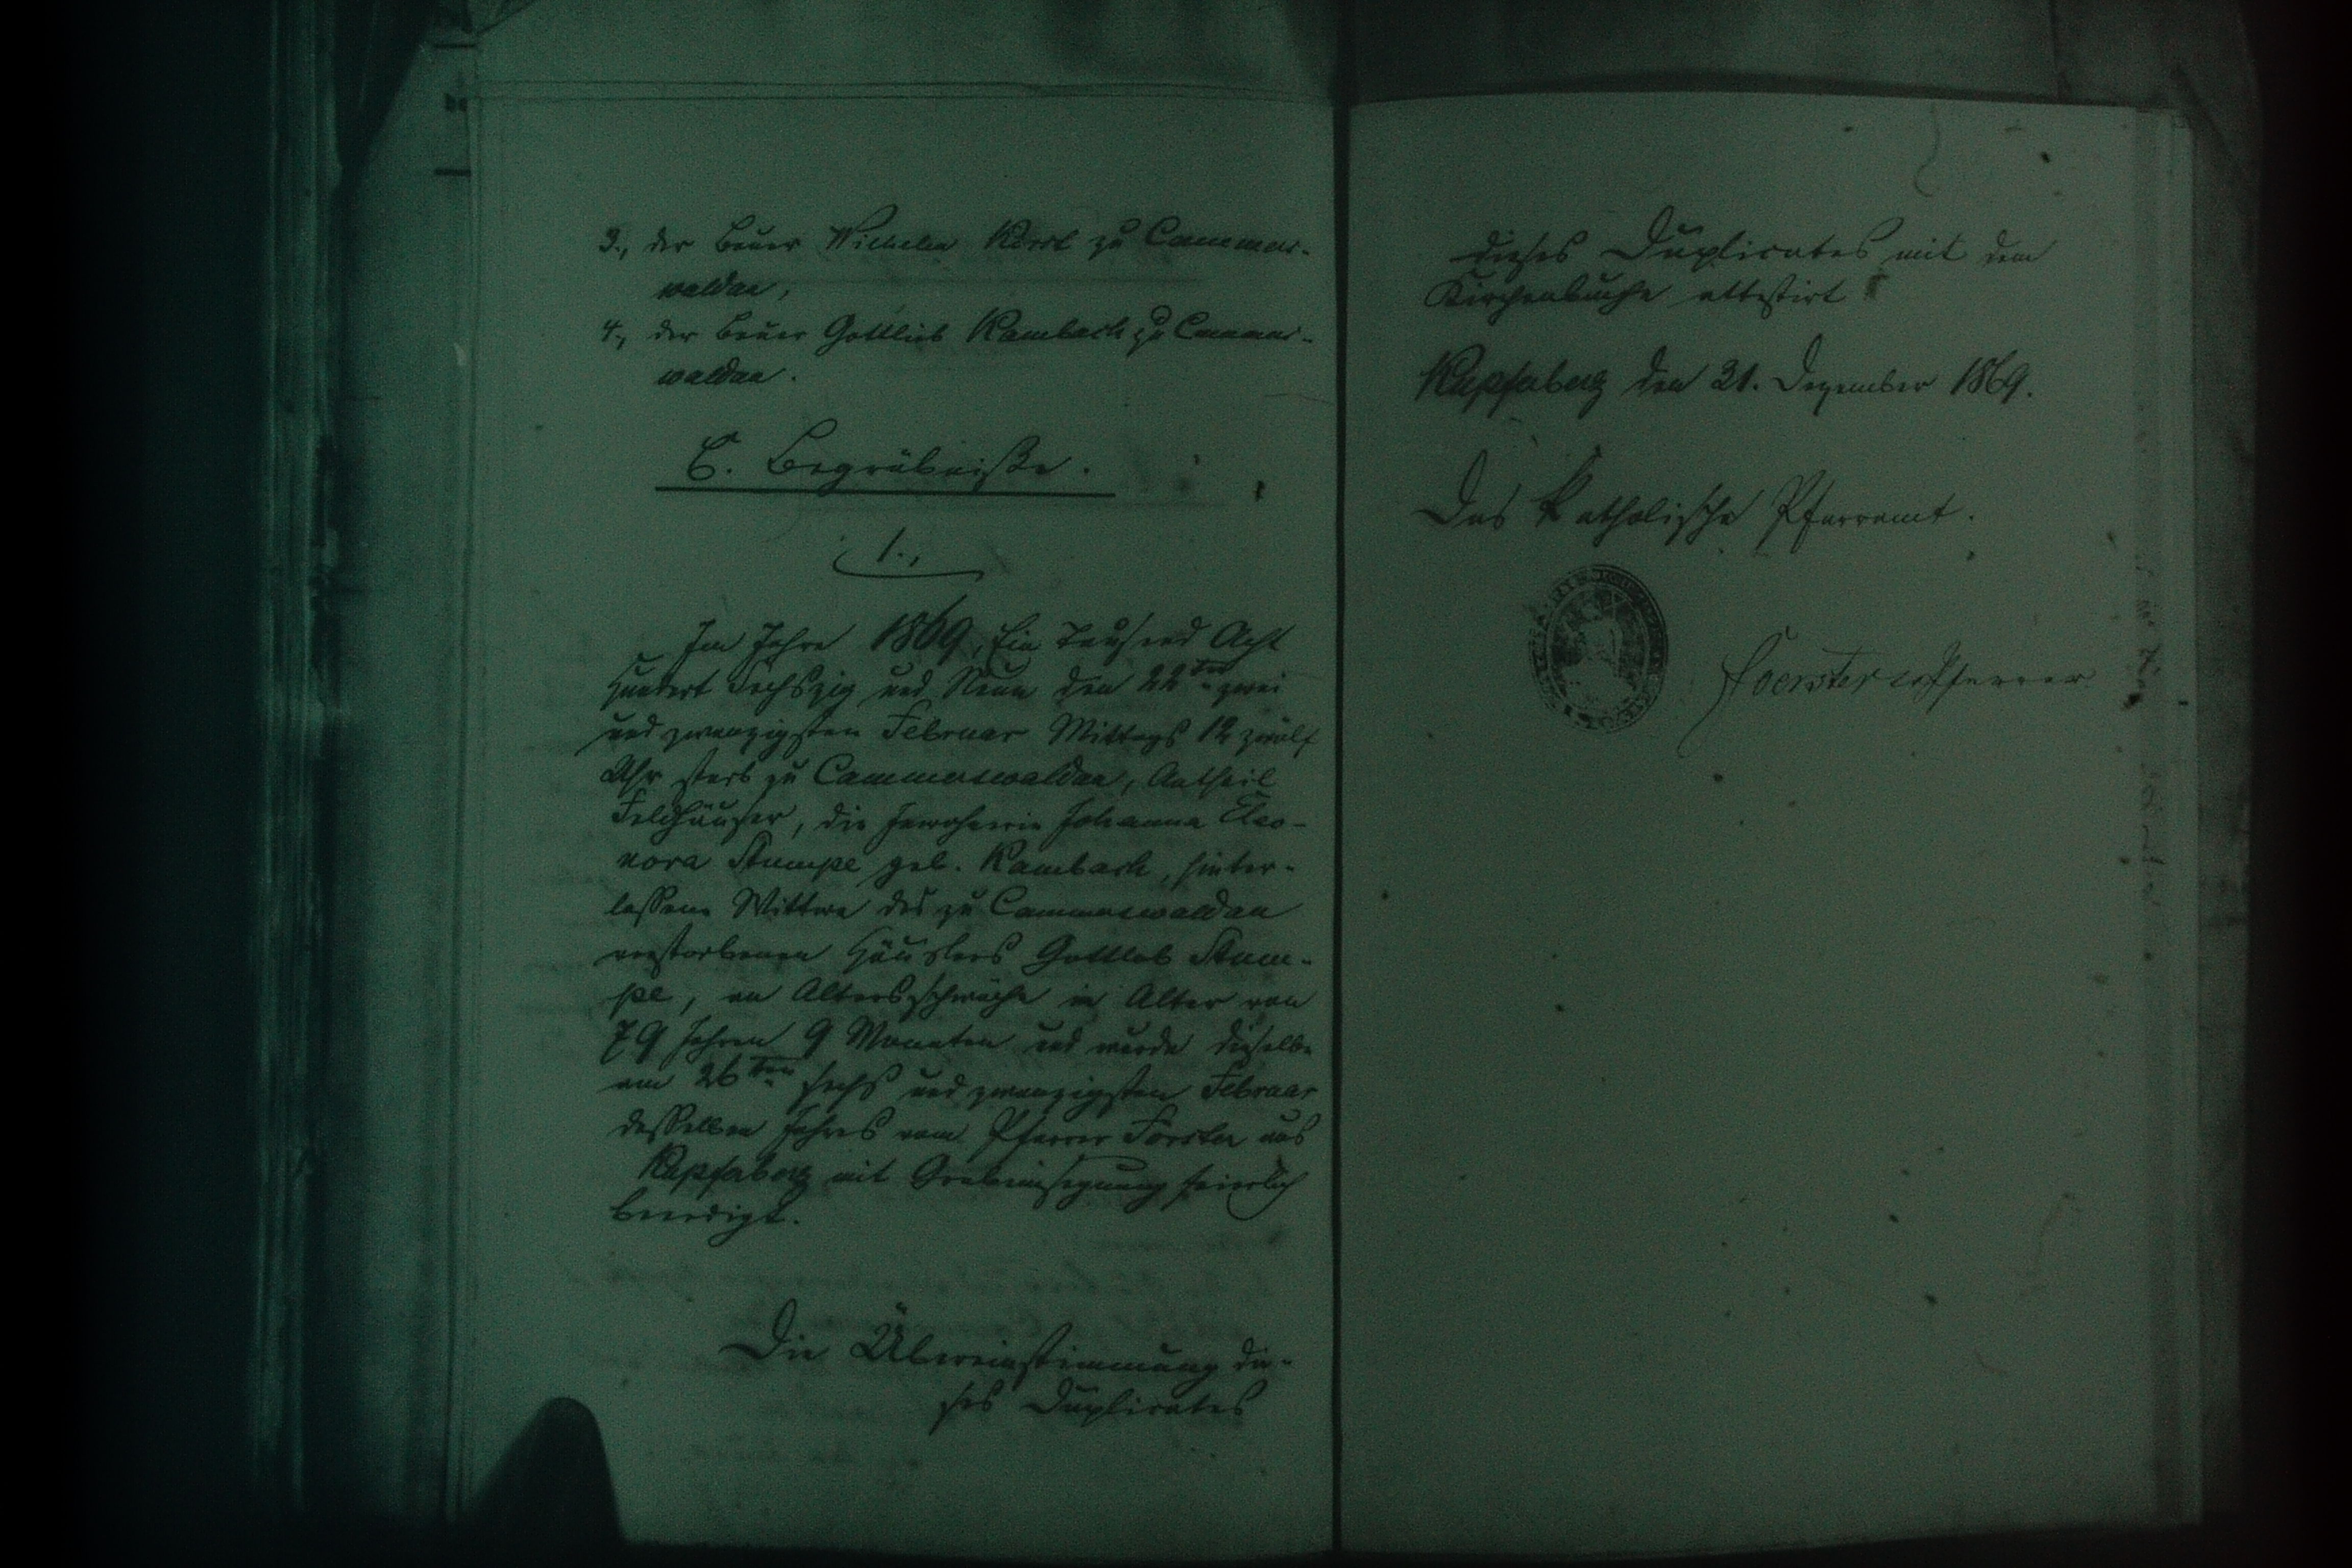 3., der Bauer Wilhelm Körrl zu Cammers-
waldau,
4., der Bauer Gottlieb Kambach zu Cammers-
waldau.
C. Begräbniße.
1.,
Im Jahre 1869, Ein Tausend Acht
Hundert Sechszig und Neun den 22ten zwei
und zwanzigsten Februar Mittags 12 zwölf
Uhr starb zu Cammerswaldau, Antheil
Feldhäuser, die Inwohnerin Johanna Eleo-
nora Stumpe geb. Kambach, hinter-
lassene Wittwe des zu Cammerswaldau
verstorbenen Häuslers Gottlob Stum-
pe, an Altersschwäche im Alter von
79 Jahren 9 Monaten und wurde dieselbe
am 26ten sechs und zwanzigsten Februar
desselben Jahres vom Pfarrer Förster aus
Kupferberg mit Grabeinsegnung feierlich
beerdigt.
Die Übereinstimmung die-
ses Duplicates
dieses Duplicates mit dem
Kirchenbuche attestirt
Kupferberg den 31. Dezember 1869.
Das Katholische Pfarramt.
Foerster Pfarrer